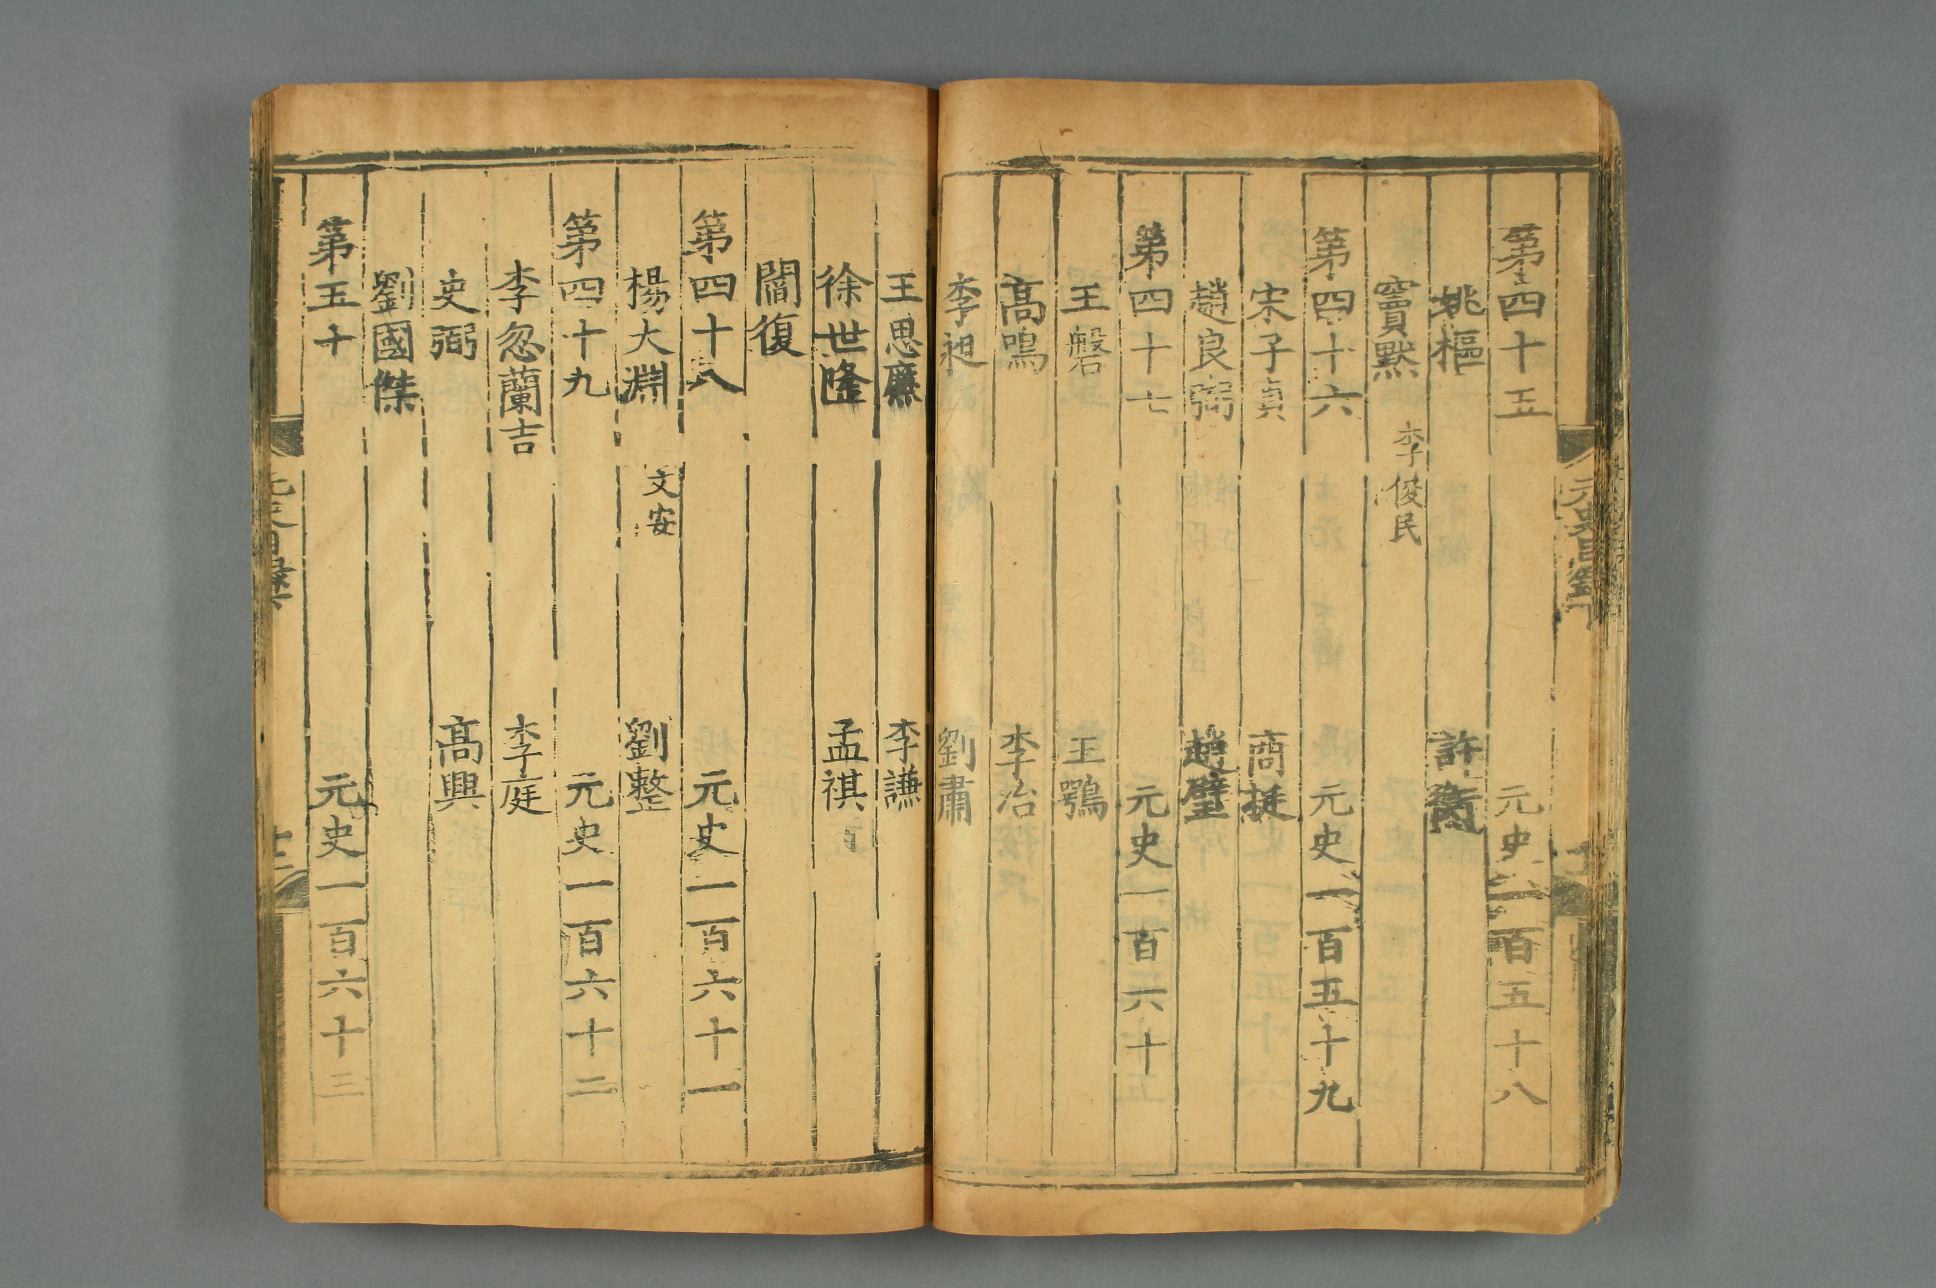 第四十五 元史一百五十八
姚樞 許衡
竇默 李俊民
第四十六 元史一百五十九
宋子貞 商挺
趙良弼 趙璧
第四十七 元史一百六十
王磐 王鶚
高鳴 李冶
李昶 劉肅
王思廉 李謙
徐世隆 孟祺
閻復
第四十八 元史一百六十一
楊大淵 文安 劉整
第四十九 元史一百六十二
李忽蘭吉 李庭
史弼 高興
劉國傑
第五十 元史一百六十三
元史目錄下